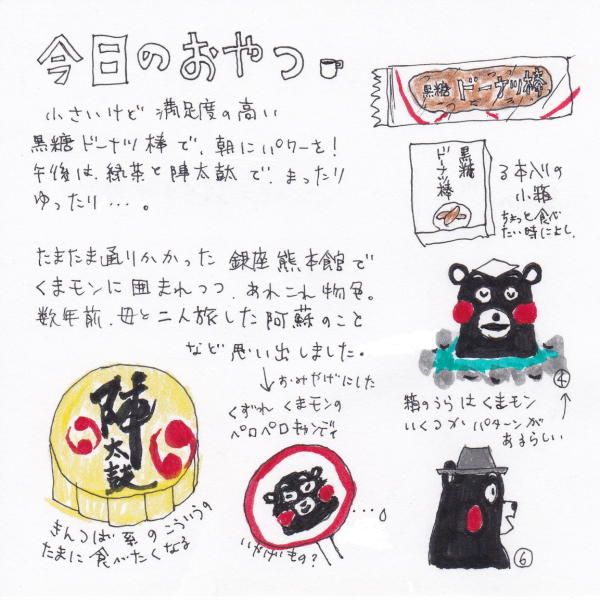 今日のおやつ
小さいけど 満足度の高い
黒糖ドーナツ棒で、朝にパワーを！
午後は、緑茶と陣太鼓で、まったり
ゆったり…。
たまたま通りかかった 銀座熊本館で
くまモンに囲まれつつ、あれこれ物色。
数年前、母と二人旅した阿蘇のこと
など思い出しました。
黒糖 ドーナツ棒
黒糖
ドーナツ棒
3本入りの
小箱
ちょっと食べ
たい時によし。
④
箱のうらはくまモン
いくつか パターンが
あるらしい
⑥
おみやげにした
くずれ くまモンの
ペロペロキャンディ
いかげもの？
陣
太鼓
きんつば系のこういうの
たまに食べたくなる